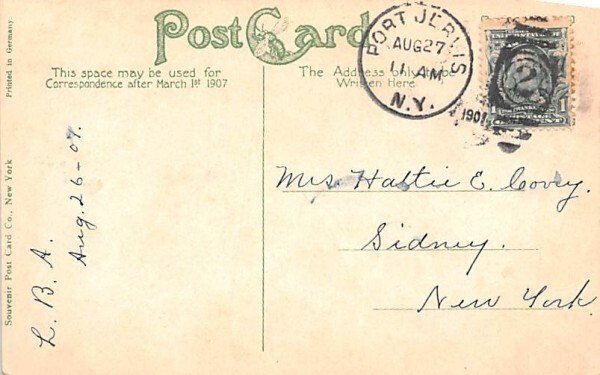 Post Card
This space may be used for
Correspondence after March 1st 1907
The Address only
Written Here
PORT JERVIS
AUG 27
11 AM
N.Y.
2
1 1
Mrs Hattie E. Covey.
Sidney.
New York.
L. B. A.
Aug. 26-07.
Printed in Germany
Souvenir Post Card Co., New York